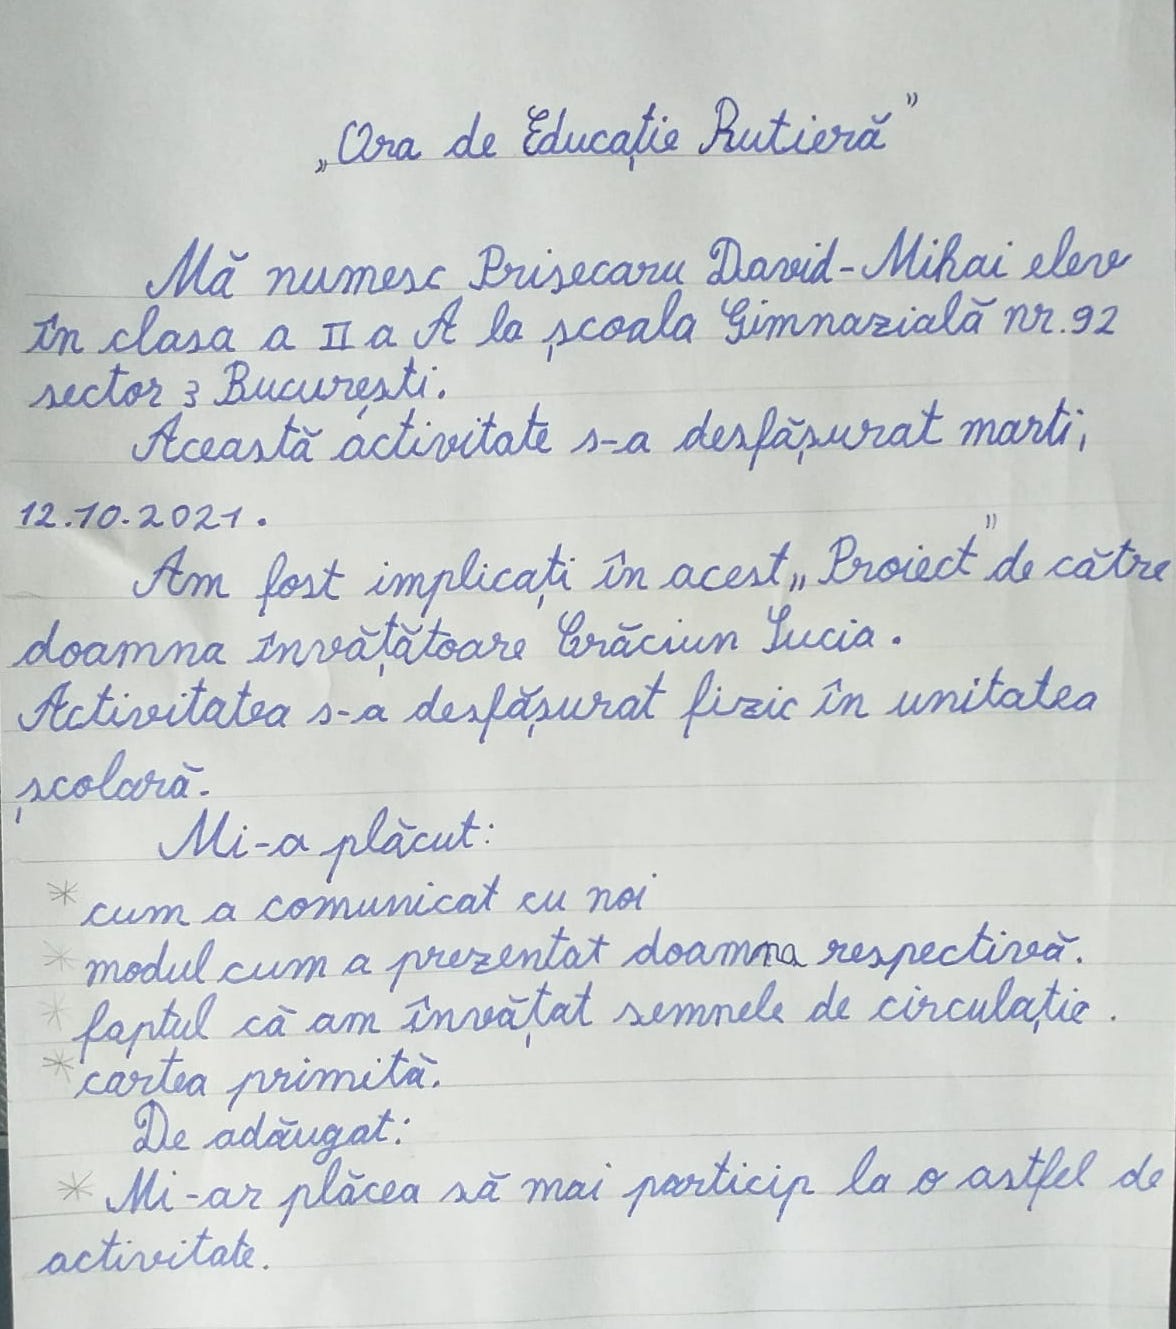 „Ora de Educație Rutieră”
Mă numesc Prisecaru David-Mihai elev
în clasa a II a A la școala Gimnazială nr.92
sector 3 București.
Această activitate s-a desfășurat marti,
12.10.2021.
Am fost implicați în acest „Proiect” de către
doamna învățătoare Crăciun Lucia.
Activitatea s-a desfășurat fizic în unitatea
școlară.
Mi-a plăcut:
* cum a comunicat cu noi
* modul cum a prezentat doamna respectivă.
* faptul că am învățat semnele de circulație.
* cartea primită.
De adăugat:
* Mi-ar plăcea să mai particip la o astfel de
activitate.